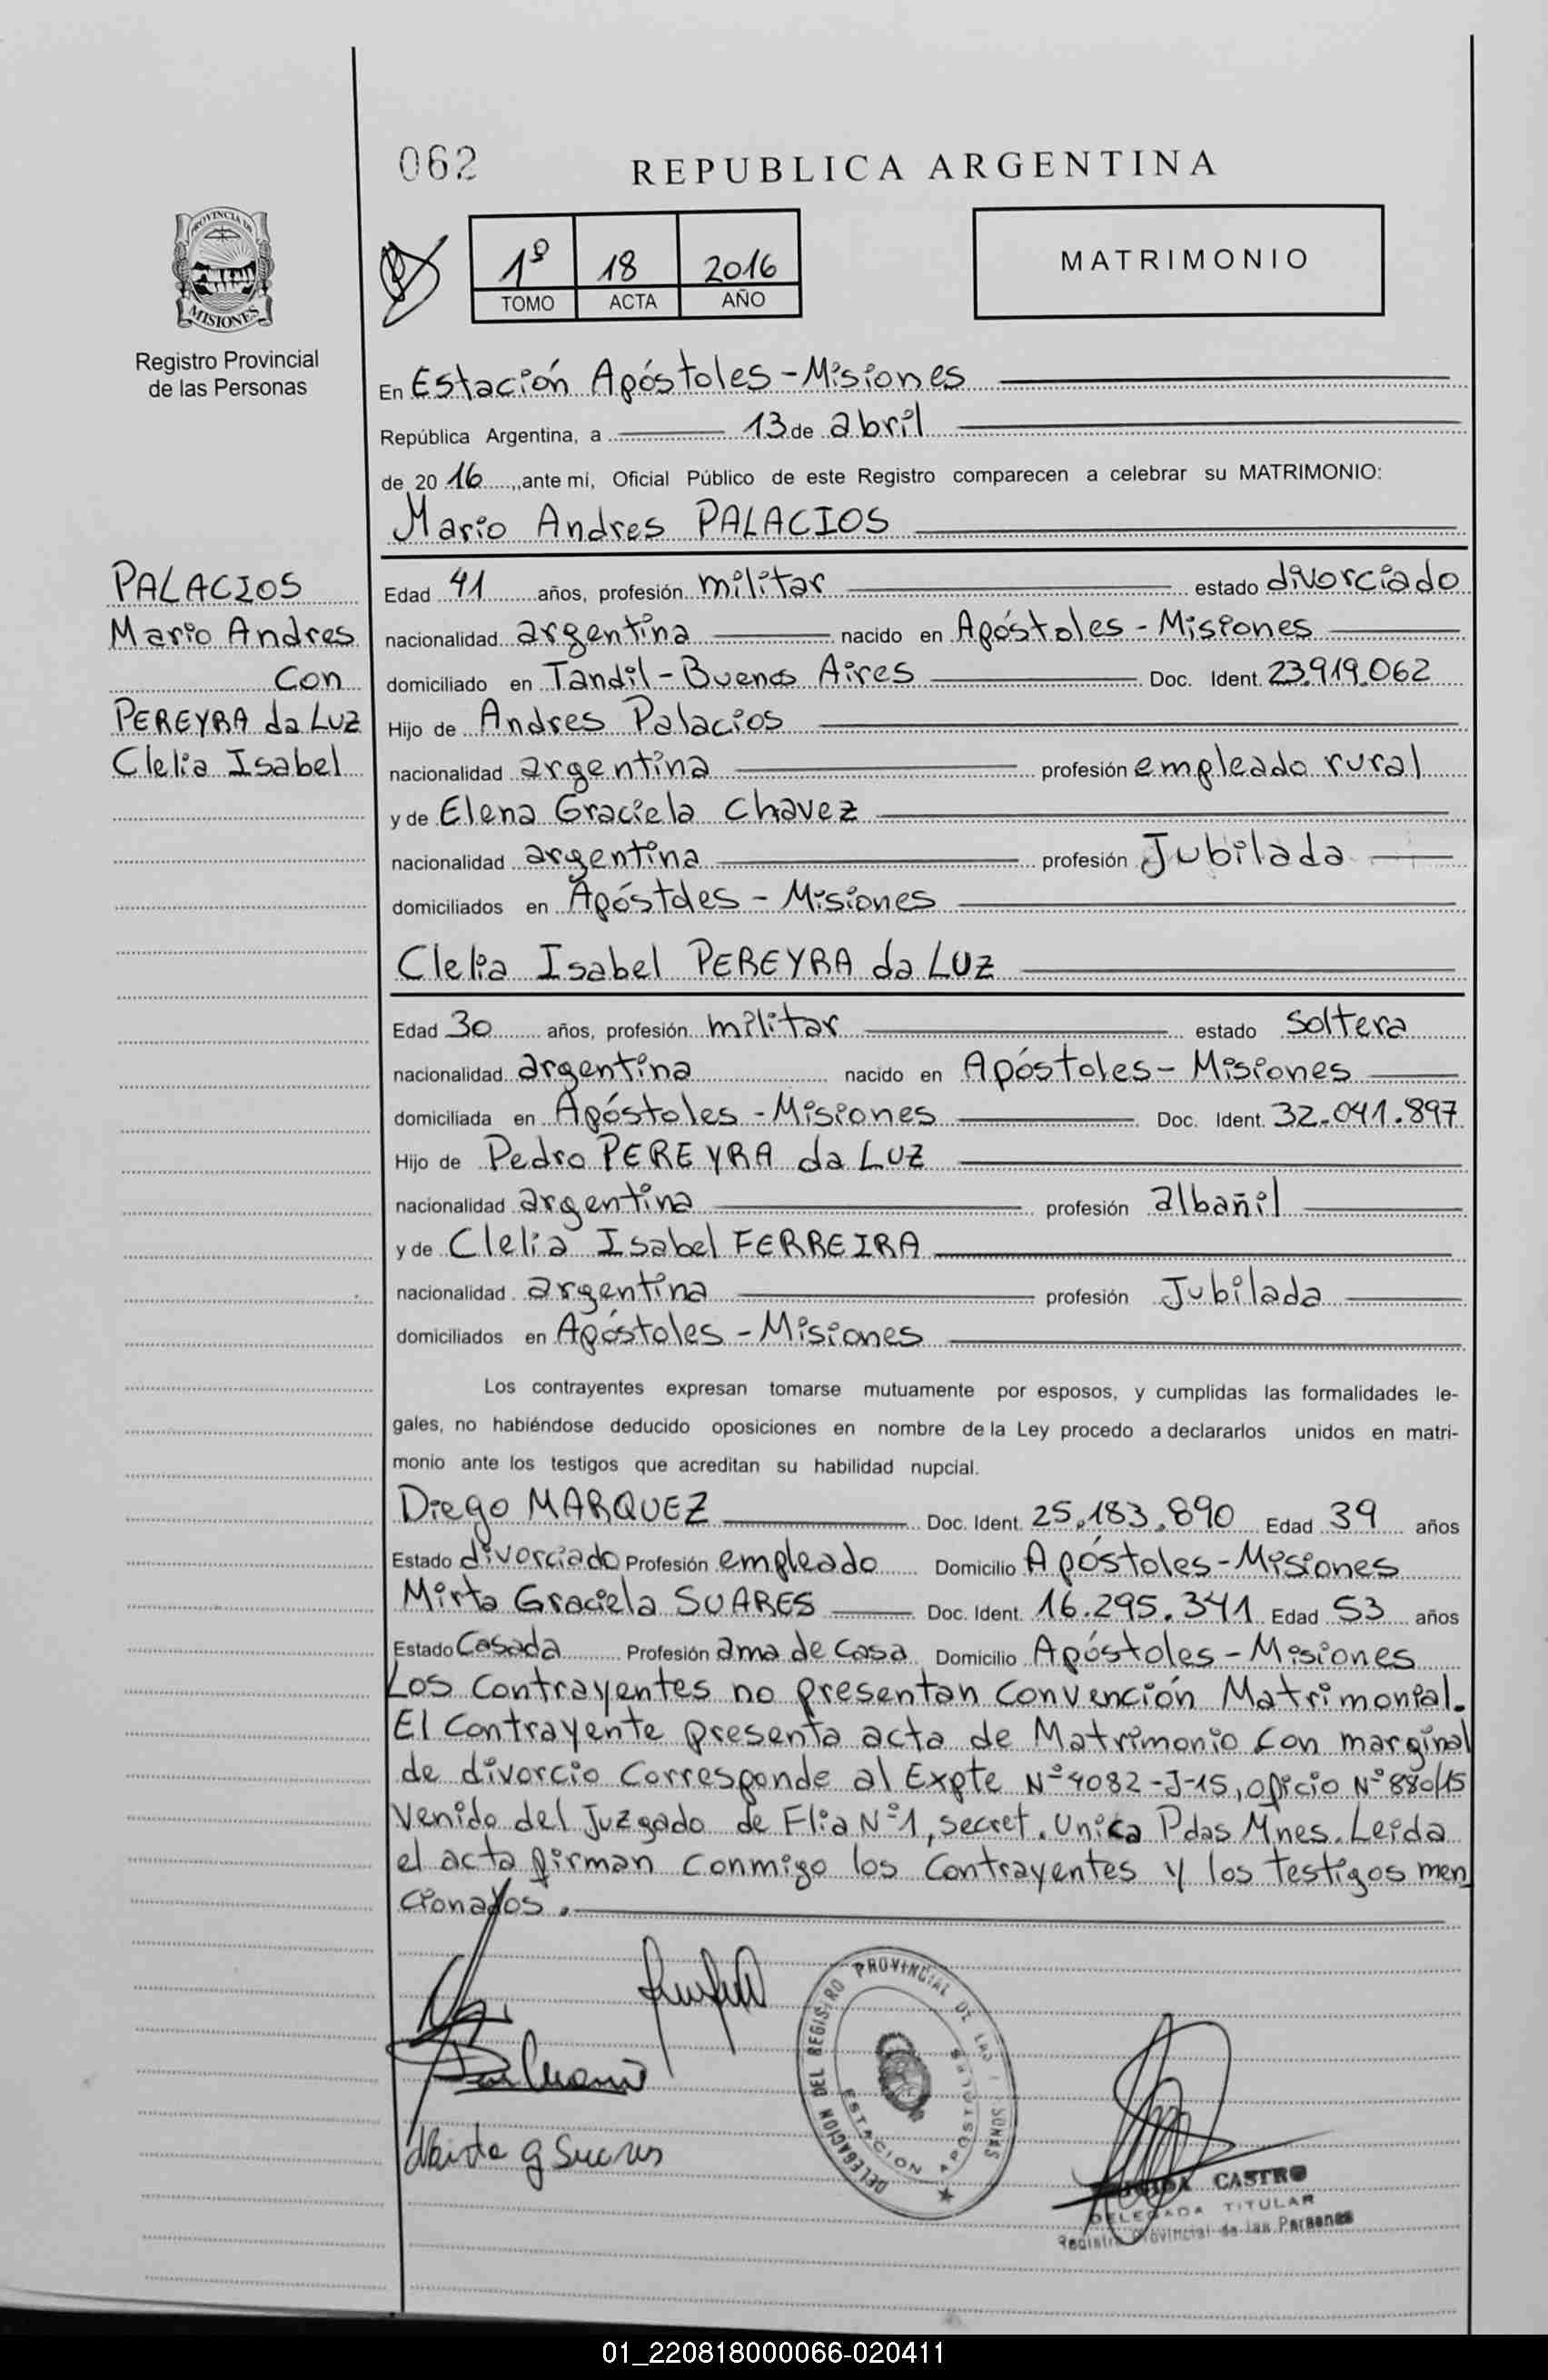 062
REPUBLICA ARGENTINA
PROVINCIA DE
MISIONES
Registro Provincial
de las Personas
1º 18 2016
TOMO ACTA AÑO
MATRIMONIO
En Estación Apóstoles - Misiones
República Argentina, a 13 de abril
de 2016, ante mí, Oficial Público de este Registro comparecen a celebrar su MATRIMONIO:
Mario Andres PALACIOS
PALACIOS
Mario Andres
con
PEREYRA da LUZ
Clelia Isabel
Edad 41 años, profesión militar estado divorciado
nacionalidad argentina nacido en Apóstoles - Misiones
domiciliado en Tandil - Buenos Aires Doc. Ident. 23.919.062
Hijo de Andres Palacios
nacionalidad argentina profesión empleado rural
y de Elena Graciela Chavez
nacionalidad argentina profesión Jubilada
domiciliados en Apóstoles - Misiones
Clelia Isabel PEREYRA da LUZ
Edad 30 años, profesión militar estado soltera
nacionalidad argentina nacido en Apóstoles - Misiones
domiciliada en Apóstoles - Misiones Doc. Ident. 32.041.897
Hijo de Pedro PEREYRA da LUZ
nacionalidad argentina profesión albañil
y de Clelia Isabel FERREIRA
nacionalidad argentina profesión Jubilada
domiciliados en Apóstoles - Misiones
Los contrayentes expresan tomarse mutuamente por esposos, y cumplidas las formalidades le-
gales, no habiéndose deducido oposiciones en nombre de la Ley procedo a declararlos unidos en matri-
monio ante los testigos que acreditan su habilidad nupcial.
Diego MARQUEZ Doc. Ident. 25.183.890 Edad 39 años
Estado divorciado Profesión empleado Domicilio Apóstoles - Misiones
Mirta Graciela SUARES Doc. Ident. 16.295.341 Edad 53 años
Estado Casada Profesión ama de casa Domicilio Apóstoles - Misiones
Los contrayentes no presentan Convención Matrimonial.
El Contrayente presenta acta de Matrimonio con marginal
de divorcio corresponde al Expte Nº 4082-J-15, oficio Nº 880/15
Venido del Juzgado de Flia Nº 1, secret. Unica Pdas Mnes. Leida
el acta firman conmigo los contrayentes y los testigos men
cionados.
DELEGACION DEL REGISTRO PROVINCIAL DE LAS PERSONAS
ESTACION APOSTOLES
Mirta G Suares
CASTRO
DELEGADA TITULAR
Registro Provincial de las Personas
01_220818000066-020411